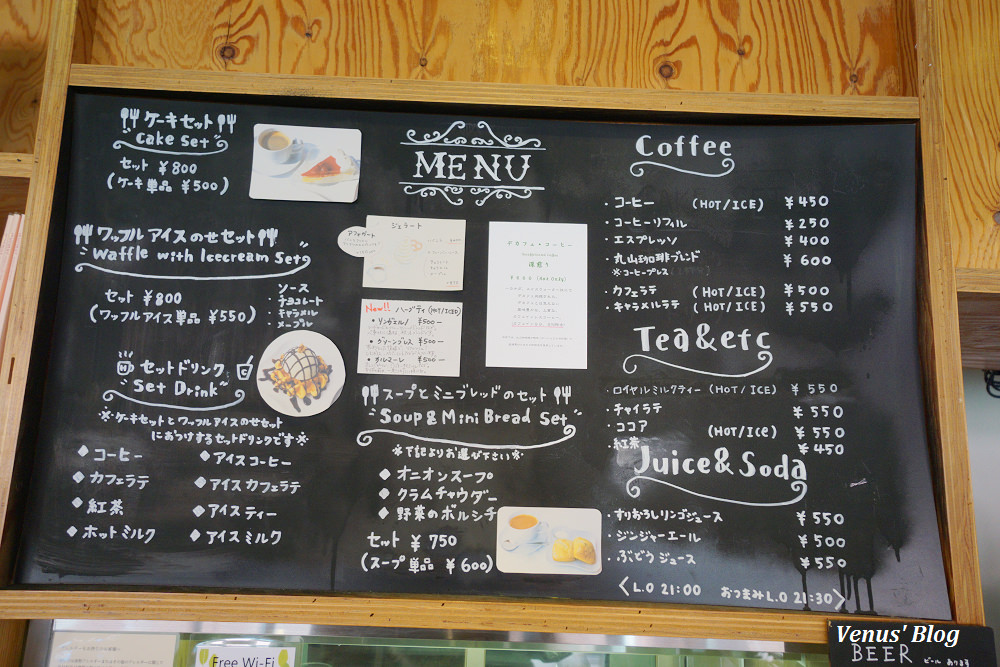 ケーキセット
Cake Set
セット ¥800
(ケーキ単品 ¥500)
ワッフルアイスのせセット
Waffle with Icecream Set
セット ¥800
(ワッフルアイス単品 ¥550)
ソース
・チョコレート
・キャラメル
・メープル
セットドリンク
Set Drink
※ケーキセットとワッフルアイスのせセット
におつけするセットドリンクです※
◆コーヒー
◆カフェラテ
◆紅茶
◆ホットミルク
◆アイスコーヒー
◆アイスカフェラテ
◆アイスティー
◆アイスミルク
MENU
ジェラート
アフォガート
New!! ハーブティ(HOT/ICED)
¥500-
• グリーンブレス ¥500-
¥500-
デカフェ・コーヒー
深煎り
スープとミニブレッドのセット
Soup & Mini Bread Set
※下記よりお選び下さい※
◆オニオンスープ
◆クラムチャウダー
◆野菜のボルシチ
セット ¥750
(スープ単品 ¥600)
Coffee
・コーヒー (HOT/ICE) ¥450
・コーヒーリフィル ¥250
・エスプレッソ ¥400
・丸山珈琲ブレンド ¥600
※コーヒープレス
・カフェラテ (HOT/ICE) ¥500
・キャラメルラテ (HOT/ICE) ¥550
Tea&etc
・ロイヤルミルクティー(HOT/ICE) ¥550
・チャイラテ ¥550
・ココア (HOT/ICE) ¥550
・紅茶 ¥450
Juice&Soda
・すりおろしリンゴジュース ¥550
・ジンジャーエール ¥500
・ぶどうジュース ¥550
〈L.O 21:00 おつまみL.O 21:30〉
Free Wi-Fi
Venus' Blog
BEER ビール あります